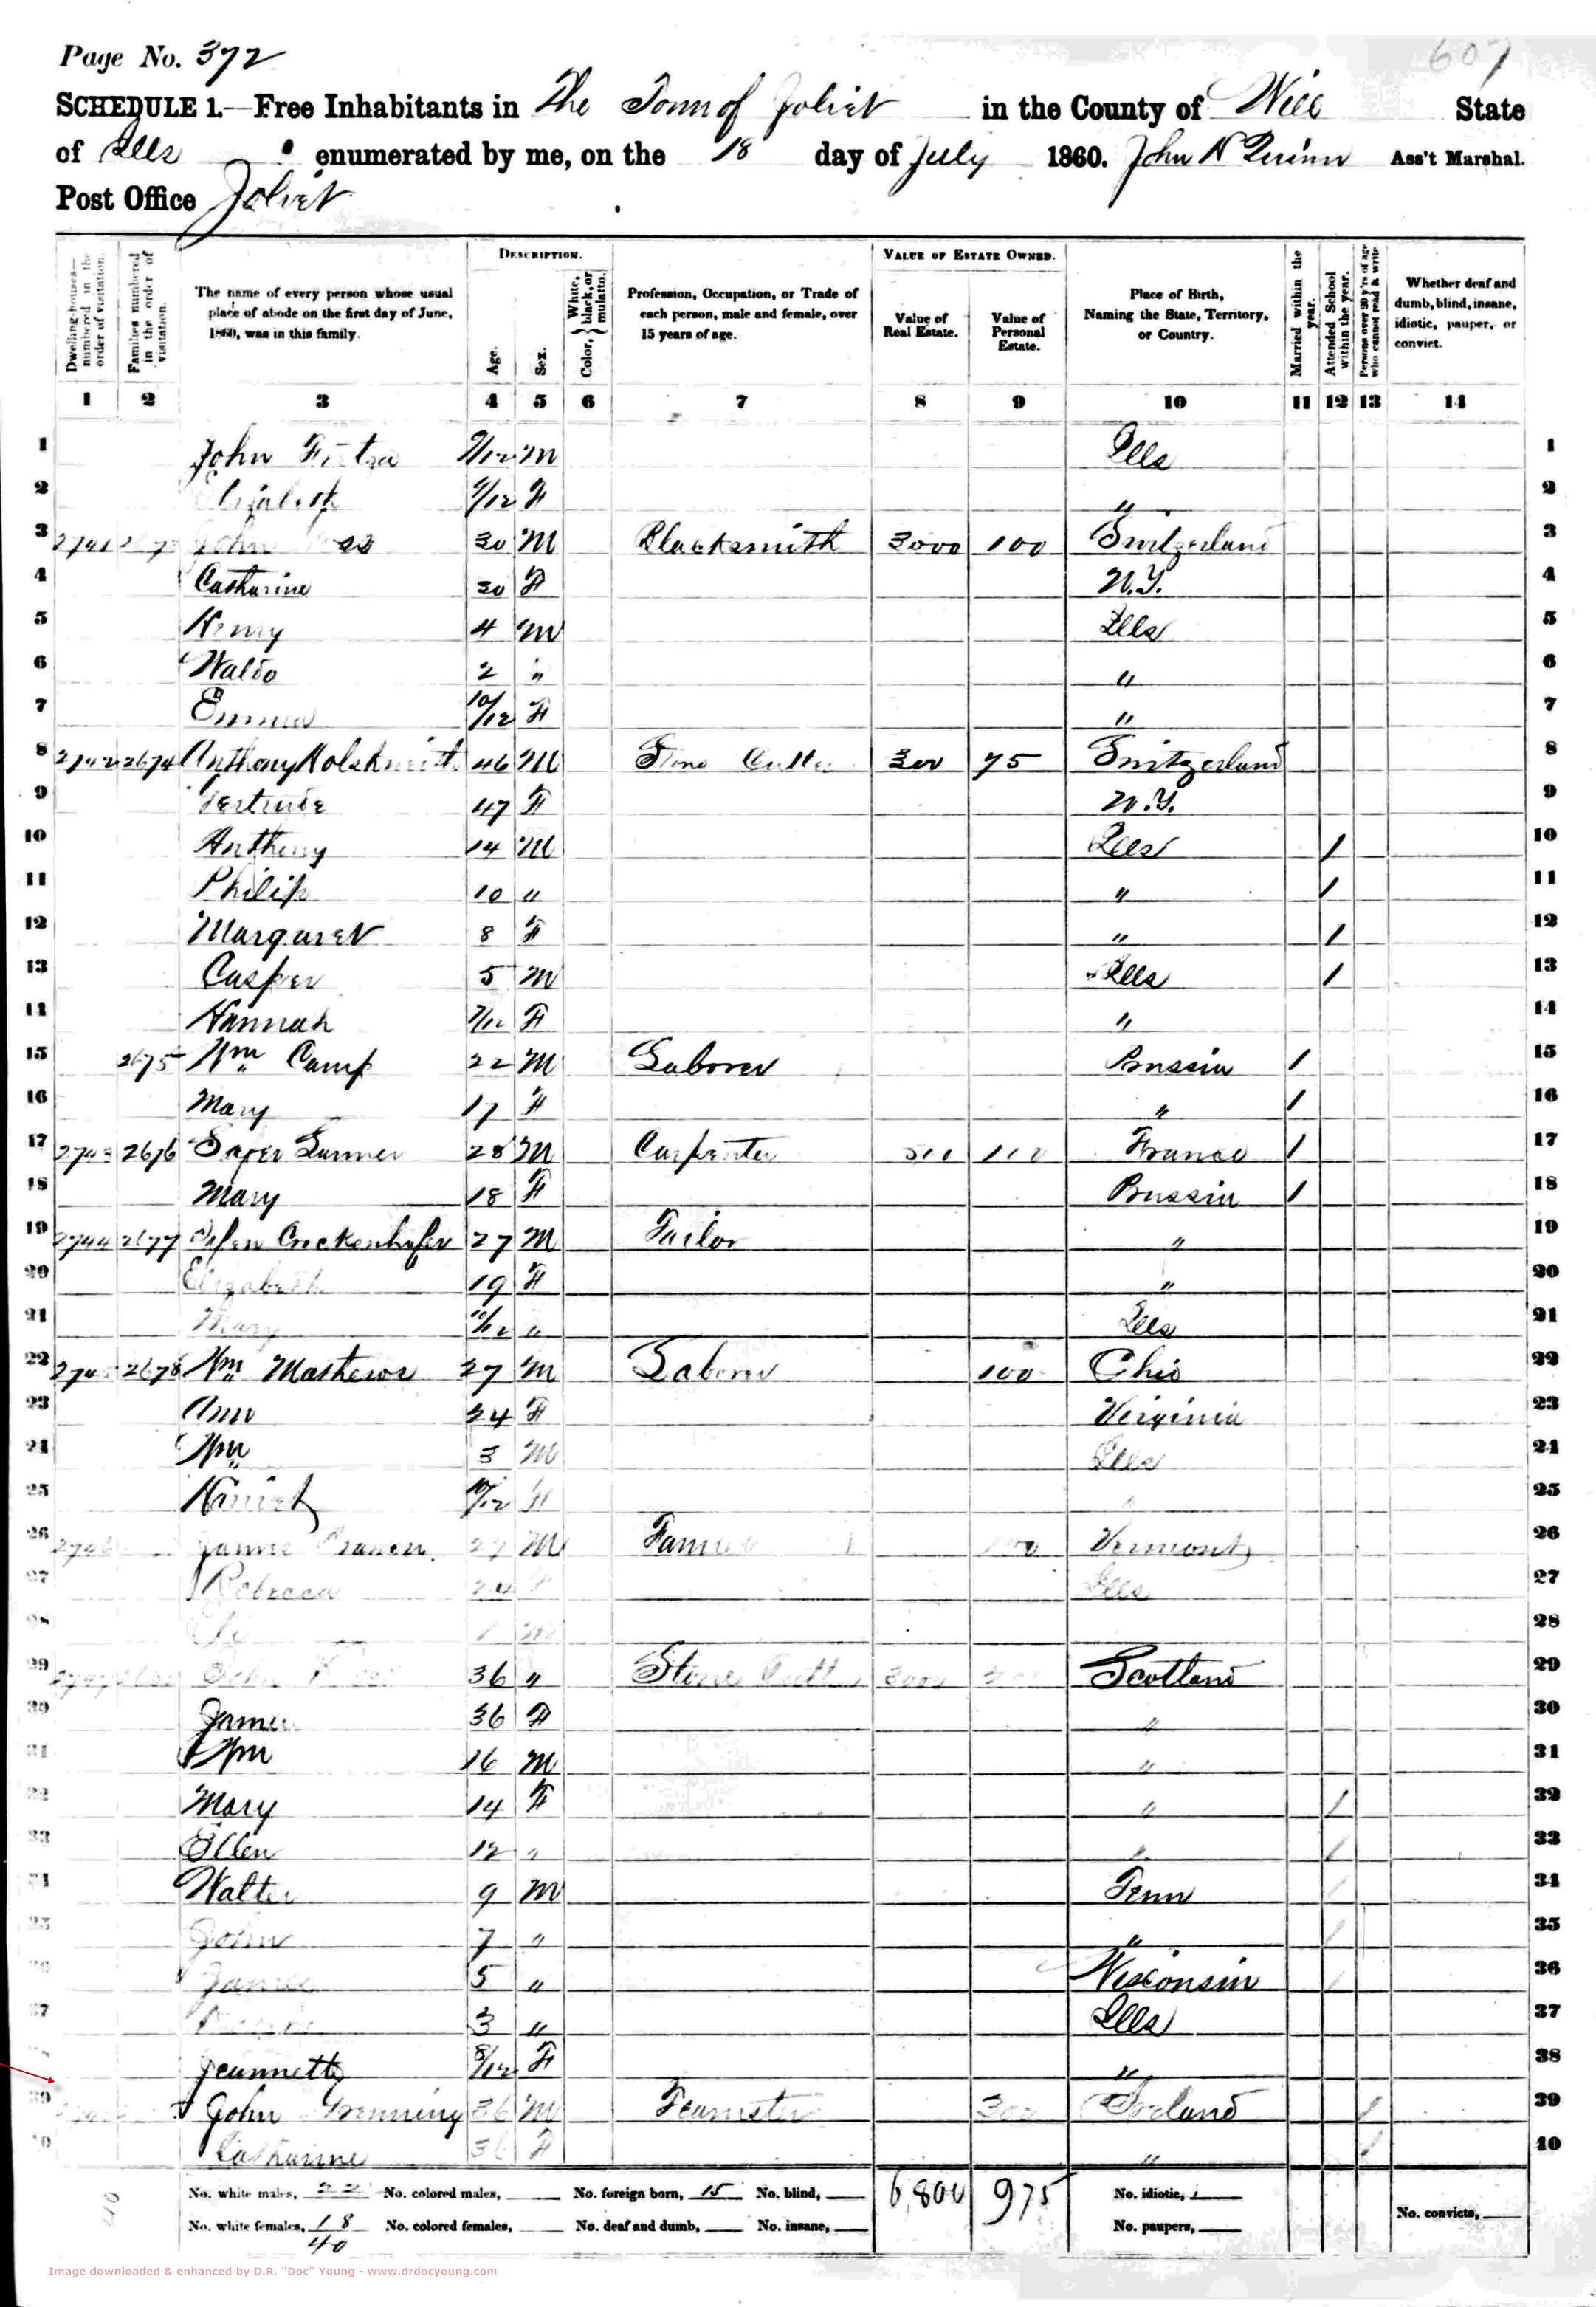 Page No. 372
607
SCHEDULE 1.—Free Inhabitants in The Town of Joliet in the County of Will State
of Ills enumerated by me, on the 18 day of July 1860. John N Quinn Ass't Marshal.
Post Office Joliet
DESCRIPTION. VALUE OF ESTATE OWNED.
Dwelling-houses—numbered in the order of visitation.
Families numbered in the order of visitation.
The name of every person whose usual place of abode on the first day of June, 1860, was in this family.
Age.
Sex.
Color, { White, black, or mulatto.
Profession, Occupation, or Trade of each person, male and female, over 15 years of age.
Value of Real Estate.
Value of Personal Estate.
Place of Birth, Naming the State, Territory, or Country.
Married within the year.
Attended School within the year.
Persons over 20 y'rs of age who cannot read & write
Whether deaf and dumb, blind, insane, idiotic, pauper, or convict.
1 2 3 4 5 6 7 8 9 10 11 12 13 14
1 John 9/12 M Ills 1
2 Elizabeth 9/12 F " 2
3 2741 John 30 M Blacksmith 3000 100 Switzerland 3
4 Catharine 30 F N.Y. 4
5 Henry 4 M Ills 5
6 Waldo 2 " " 6
7 Emma 10/12 F " 7
8 2742 2674 Anthony 46 M Stone Cutter 300 75 Switzerland 8
9 Gertrude 47 F N.Y. 9
10 Anthony 14 M Ills / 10
11 Philip 10 " " / 11
12 Margaret 8 F " / 12
13 Casper 5 M Ills / 13
14 Hannah 7/12 F " 14
15 2675 Wm Camp 22 M Laborer Prussia / 15
16 Mary 17 F " / 16
17 2743 2676 28 M Carpenter 500 100 France / 17
18 Mary 18 F Prussia / 18
19 2744 2677 27 M Tailor " 19
20 Elizabeth 19 F " 20
21 Mary "/12 " Ills 21
22 2745 2678 Wm Mathews 27 M Laborer 100 Ohio 22
23 Ann 24 F Virginia 23
24 Wm 3 M Ills 24
25 Harriet 10/12 F " 25
26 2746 James 27 M Vermont 26
27 Rebecca 24 F Ills 27
28 1 M 28
29 2747 John 36 " Stone Cutter 3000 Scotland 29
30 36 F " 30
31 Wm 16 M " 31
32 Mary 14 F " / 32
33 Ellen 12 " " / 33
34 Walter 9 M Tenn / 34
35 John 7 " " / 35
36 James 5 " Wisconsin / 36
37 3 " Ills 37
38 Jeannette 8/12 F " 38
39 John Grenning 36 M Teamster 300 Ireland / 39
40 Catharine 36 F " / 40
No. white males, 22 No. colored males, No. foreign born, 15 No. blind, 6,800 975 No. idiotic,
No. white females, 18 No. colored females, No. deaf and dumb, No. insane, No. paupers, No. convicts,
40
Image downloaded & enhanced by D.R. "Doc" Young - www.drdocyoung.com